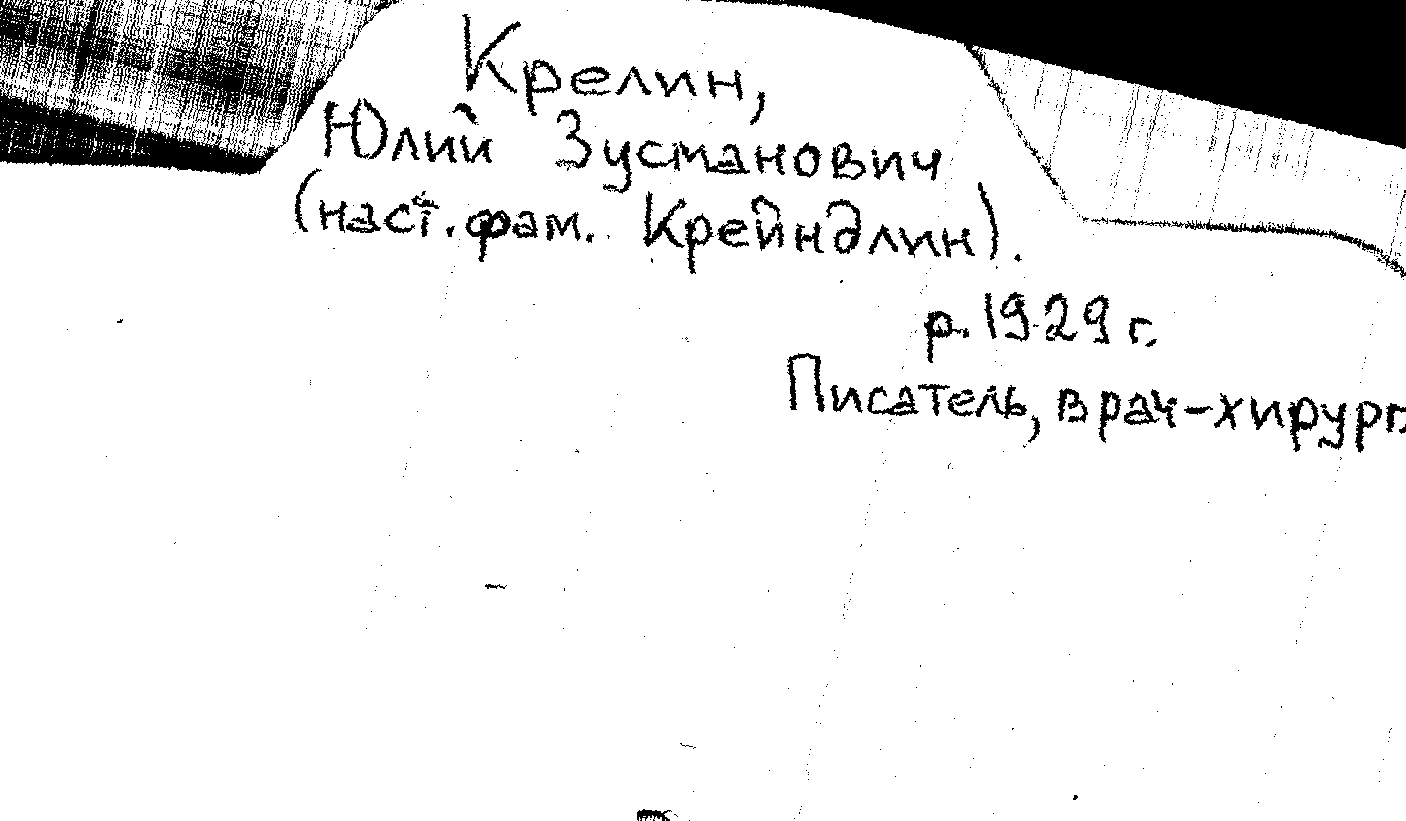 Крелин,
Юлий Зусманович
(наст. фам. Крейндлин).
р. 1929 г.
Писатель, врач-хирург.